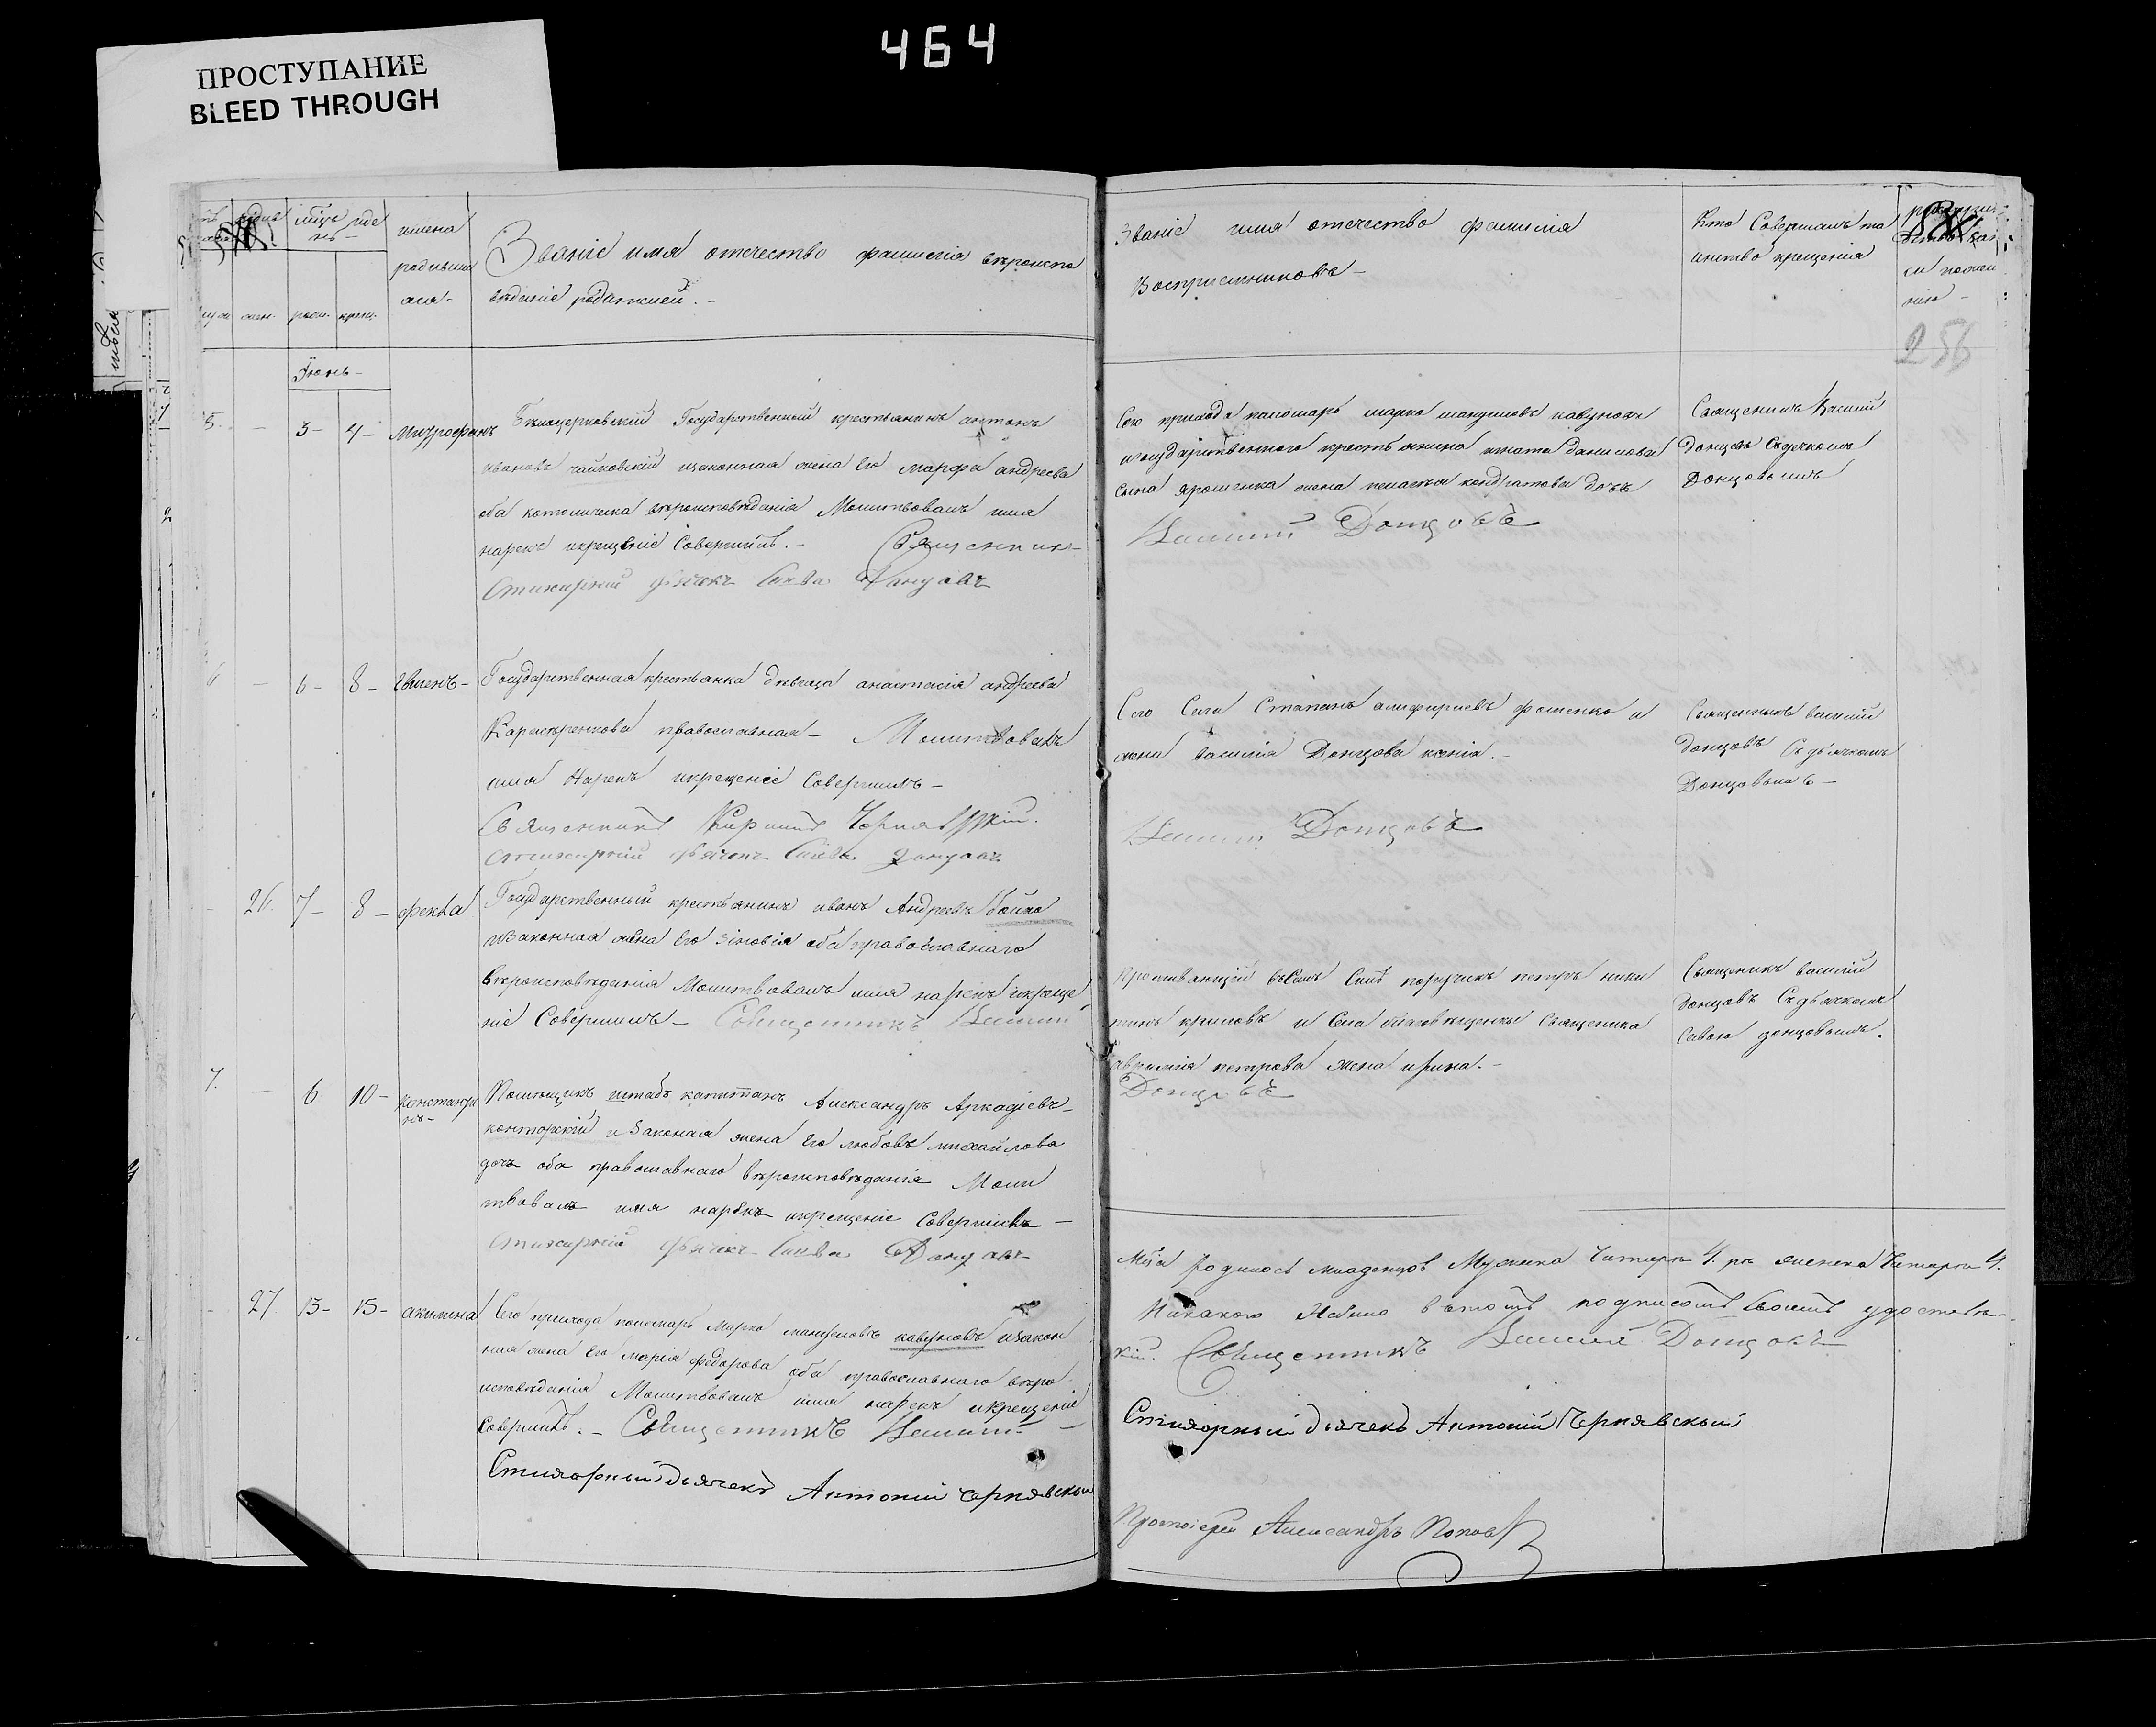 464
ПРОСТУПАНИЕ
BLEED THROUGH
имена
родивши
хся-
Званіе имя отечество фамилія вѣроиспо
вѣданіе родителей. -
рожд. крещ.
Іюнь-
5. - 3- 4- Митрофанъ
Государственный крестьянинъ антонъ
ивановъ чайковскій изаконная жена его марфа андреева
оба вѣроисповѣданія Молитвовалъ имя
нарекъ икрещеніе Совершилъ. - Священникъ
Стихарный дьячекъ Савва Донцовъ
6 - 6- 8- Евгенъ-
Государственная крестьянка дѣвица анастасія андреева
православная- Молитвовалъ
имя Нарекъ икрещеніе Совершилъ-
Священникъ
Стихарный дьячекъ Савва Донцовъ
- 26. 7- 8- фекла
Государственный крестьянинъ иванъ Андреевъ бойко
изаконная жена Его зіновія оба православнаго
вѣроисповѣданія Молитвовалъ имя нарекъ икреще
ніе Совершилъ- Священникъ Василій
7. - 6 10- константи
нъ-
Помѣщикъ штабъ капитанъ Александръ Аркадіевъ-
изаконая жена Его любовъ михайлова
дочъ оба православнаго вѣроисповѣданія Моли
твовалъ имя нарекъ икрещеніе Совершилъ-
Стихарный дьячекъ Савва Донцовъ
- 27. 13- 15- акилина
Сего прихода пономаръ Марко мануиловъ кавуновъ изакон
ная жена Его марія федорова оба православнаго вѣро
исповѣданія Молитвовалъ имя нарекъ икрещеніе
Совершилъ. - Священникъ Василій-
Стихарный дьячекъ Антоній Чернявскій
Званіе имя отечество фамилія
Воспріемниковъ-
Кто Совершалъ та
инство крещенія
256
Сего прихода пономаръ марко мануиловъ кавуновъ
игосударственнаго крестьянина игната данилова
сына ярошенка жена пелагія кондратова дочъ
Василій Донцовъ
Священникъ Василій
Донцовъ Сдячкомъ
Донцовымъ
Сего Села Стапанъ фоменко и
жена василія Донцова ксенія. -
Василій Донцовъ
Священникъ василій
Донцовъ Съдьячкомъ
Донцовымъ-
Проживающій въСемъ Селѣ поручикъ петръ ники
тинъ криловъ и Села благовѣщенки Священика
петрова жена ирина. -
Донцовъ
Священикъ василій
Донцовъ Съдьячкомъ
Савою донцовымъ.
Родилось младенцов Мужеска Четыри 4. Женска Четыри 4.
Священникъ Василій Донцовъ
Стихарный дьячекъ Антоній Чернявскый
Протоіерей Александръ Поповъ